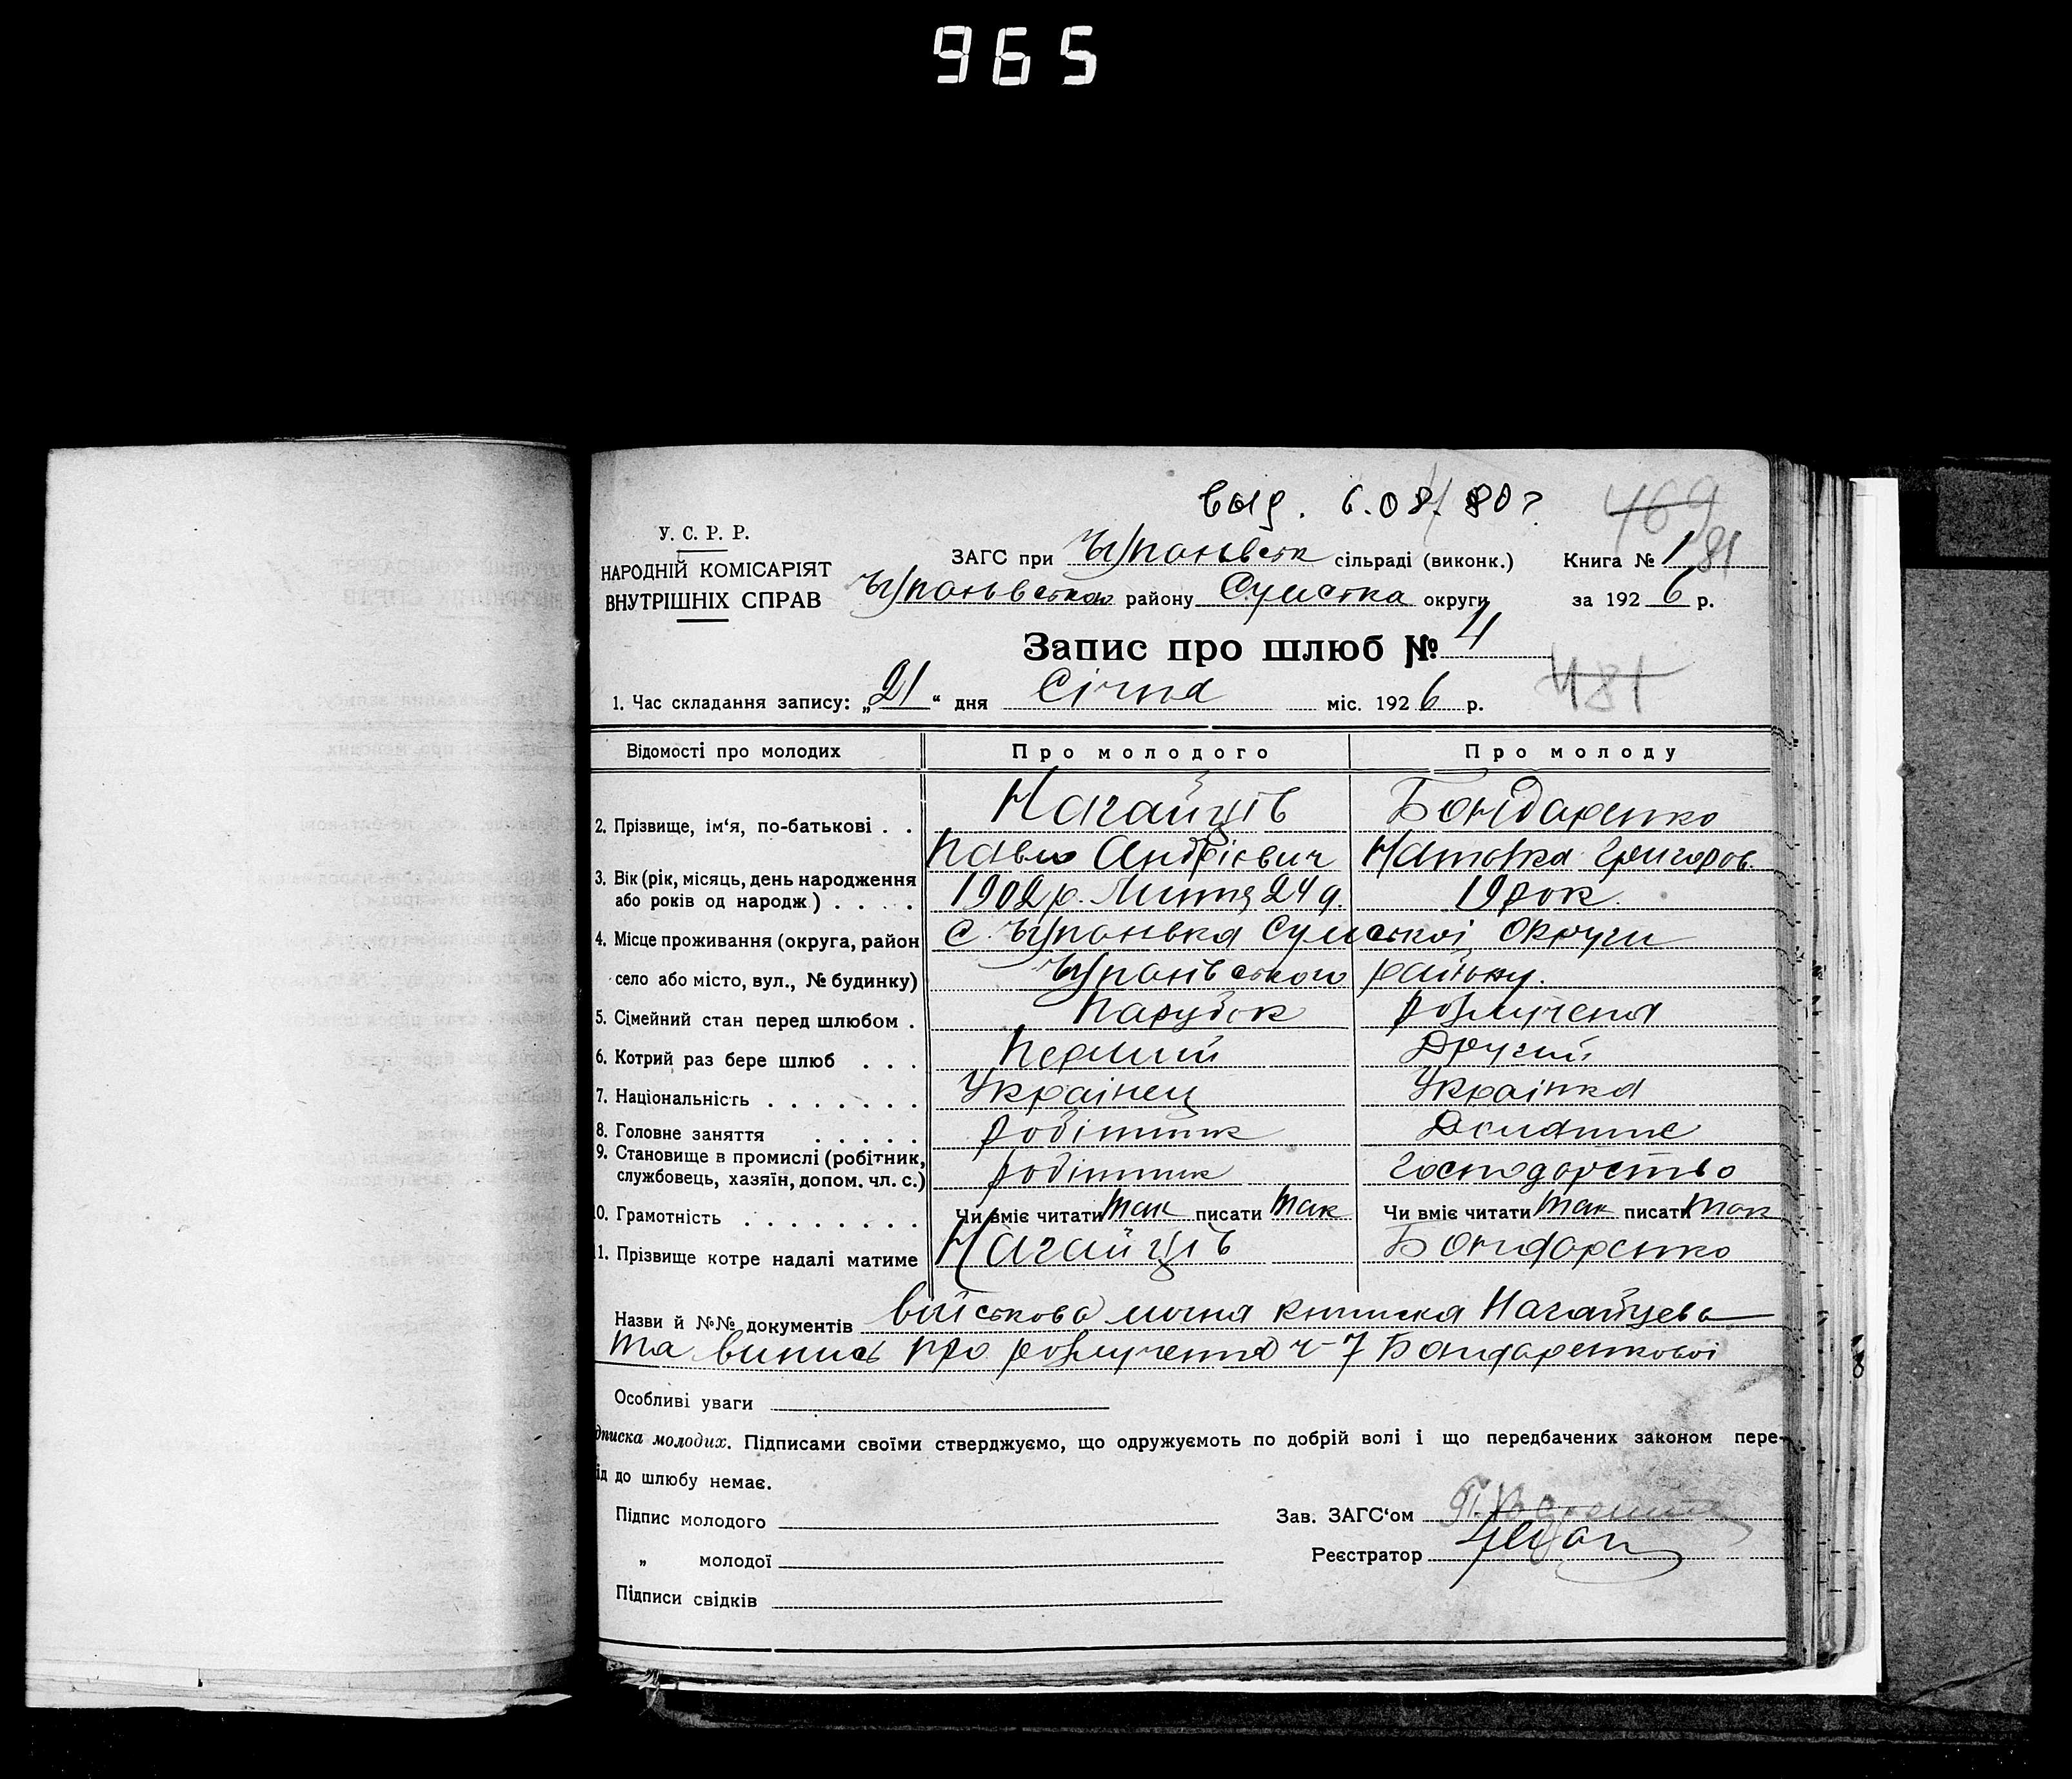 965
выд. 6.08. 80
469
У. С. Р. Р.
НАРОДНІЙ КОМІСАРІЯТ
ВНУТРІШНІХ СПРАВ
ЗАГС при сільраді (виконк.) Книга № 1 81
району Сумська округи за 1926 р.
Запис про шлюб № 4
481
1. Час складання запису: „21“ дня Січня міс. 1926 р.
Відомості про молодих Про молодого Про молоду
2. Прізвище, ім‘я, по-батькові . . Нагайців Бондаренко
Павло Андрієвич Наталка Григоров.
3. Вік (рік, місяць, день народження
або років од народж.) . . . . 1902 р. Липня 24 д. 19 рок.
4. Місце проживання (округа, район с. Сумської Округи
село або місто, вул., № будинку) району.
5. Сімейний стан перед шлюбом . Парубок розлучена
6. Котрий раз бере шлюб . . . Перший Другий
7. Національність . . . . . . . Українец Українка
8. Головне заняття . . . . . робітник Домашнє
9. Становище в промислі (робітник,
службовець, хазяїн, допом. чл. с.) робітник господарство
10. Грамотність . . . . . . . . Чи вміє читати так писати так Чи вміє читати так писати так
11. Прізвище котре надалі матиме Нагайців Бондаренко
Назви й №№ документів військова книжка Нагайцева
та випись про розлучення ч-7 Бондаренкової
Особливі уваги
дписка молодих. Підписами своїми стверджуємо, що одружуємоть по добрій волі і що передбачених законом пере-
ід до шлюбу немає.
Підпис молодого Зав. ЗАГС‘ом
„ молодої Реєстратор
Підписи свідків